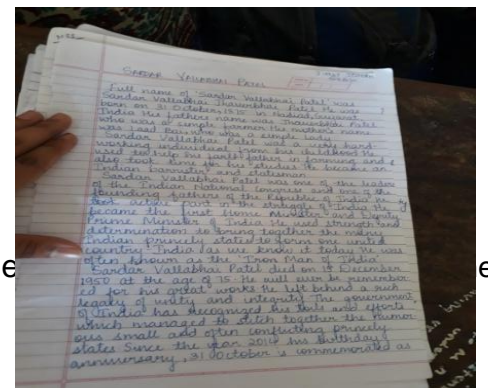 SARDAR VALLABHBHAI PATEL
Full name of Sardar Vallabhai Patel was
Sardar Vallabhai Jhaverbhai Patel He was
born on 31 October 1875 in Nadiad, Gujarat
India His fathers name was Jhaverbhai Patel
who was a simple farmer His mother's name
was Laad Bai, who was a simple lady
Sardar Vallabhai Patel was a very hard
working individual from his childhood He
used to help his father in farming and
also took time for his studies He became an
Indian barrister and statesman
Sardar Vallabhai Patel was one of the leader
of the Indian National Congress and one of the
founding fathers of the Republic of India He
took active part in the struggle of India He
became the first Home Minister and Deputy
Prime Minister of India He used strength and
determination to bring together the many
Indian princely states to form one united
country India (as we know it today He was
often known as the 'Iron Man of India'
Sardar Vallabhai Patel died on 15 December
1950 at the age of 75 He will ever be remember
ed for his great work He left behind a rich
legacy of unity and integrity The government
of India has recognized his and efforts
which managed to stitch together the numer
ous small and often conflicting princely
states Since the year 2014 his birthday
anniversary, 31 October is commemorated as
e
e